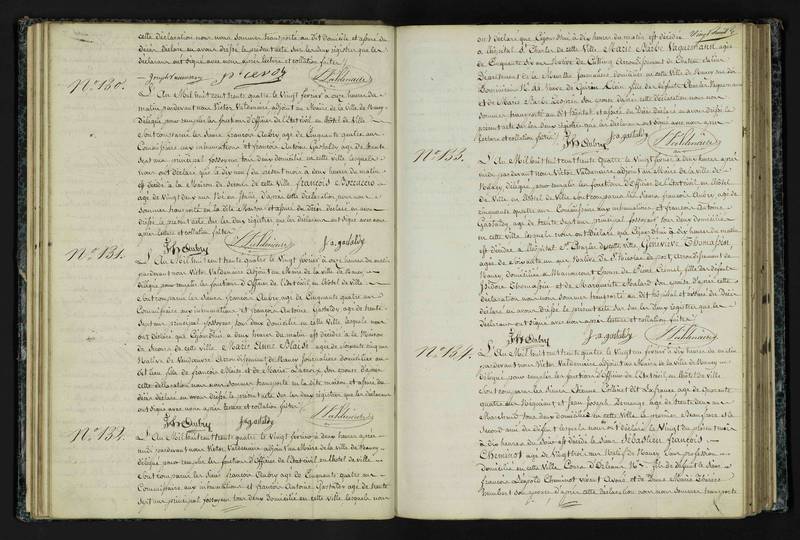 cette déclaration nous nous sommes transporté au dit domicile et assuré du
décès déclaré en avons dressé le présent acte sur les deux régistres que les
déclarans ont signé avec nous après lecture et collation faites
N.o 130.
L'An Mil huit cent trente quatre le Vingt fevrier à onze heures du
matin pardevant nous Victor Valdenaire, adjoint au Maire de la ville de Nancy
délégué pour remplir les fonctions d'Officier de l'Etat civil en hôtel de Ville
Sont comparus les Sieurs François Aubry agé de Cinquante quatre ans
Commissaire aux inhumations et François Antoine Gastaldy agé de trente
sept ans principal fossoyeur tous deux domiciliés en cette ville lesquels
nous ont déclaré que le dix neuf du présent mois à deux heures du matin
est décédé à la Maison de Secours de cette ville François Boccacio
agé de Vingt deux ans
sommes transporté en la dite Maison et assuré du décès déclaré en avons
dressé le présent acte sur les deux régistres que les déclarans ont signé avec nous
après lecture et collation faites
Aubry Valdenaire f. a. gastaldy
N.o 131.
L'An Mil huit cent trente quatre le Vingt fevrier à onze heures du matin
pardevant nous Victor Valdenaire Adjoint au Maire de la ville de Nancy
délégué pour remplir les fonctions d'Officier de l'Etat civil en hôtel de Ville
Sont comparus les Sieurs François Aubry agé de Cinquante quatre ans
Commissaire aux inhumations et François Antoine Gastaldy agé de trente
sept ans principal fossoyeur tous deux domiciliés en cette Ville, lesquels nous
ont déclaré que Cejourd'hui à deux heures du matin est décédée à la Maison
de Secours de cette ville Marie Anne Blaise agée de soixante cinq ans
Native de Vandoeuvre Arrondissement de Nancy Journalière domiciliée au
dit lieu, fille de François Blaise et de Marie Lacroix Son épouse d'après
cette déclaration nous nous sommes transporté en la dite maison et assuré du
décès déclaré en avons dressé le présent acte sur les deux régistres que les déclarans
ont signé avec nous après lecture et collation faites
Aubry f. a. gastaldy Valdenaire
N.o 132.
L'An Mil huit cent trente quatre le Vingt fevrier à deux heures après
midi pardevant nous Victor Valdenaire adjoint au Maire de la Ville de Nancy
délégué pour remplir les fonctions d'Officier de l'Etat civil en hôtel de ville
Sont comparus les Sieurs François Aubry agé de Cinquante quatre ans
Commissaire aux inhumations et François Antoine Gastaldy agé de trente
sept ans principal fossoyeur tous deux domiciliés en cette ville, lesquels nous
ont déclaré que Cejourd'hui à dix heures du matin est décédée
à l'hôpital St. Charles de cette Ville Marie Barbe agée
de Cinquante six ans Native de Arrondissement de Château Salins
Département de la Meurthe journalière domiciliée en cette Ville de Nancy rue des
Dominicains No. veuve de fille de défunts Charles
et de Marie son épouse d'après cette déclaration nous nous
sommes transporté au dit hôpital et assuré du décès déclaré en avons dressé le
présent acte sur les deux régistres que les déclarans ont signé avec nous après
lecture et collation faites
Aubry f. a. gastaldy Valdenaire
N.o 133.
L'An Mil huit cent trente quatre le Vingt fevrier à deux heures après
midi pardevant nous Victor Valdenaire adjoint au Maire de la ville de
Nancy, délégué pour remplir les fonctions d'Officier de l'Etat civil en hôtel
de Ville en hôtel de Ville sont comparus les Sieurs François Aubry agé de
cinquante quatre ans Commissaire aux inhumations et François Antoine
Gastaldy agé de trente sept ans principal fossoyeur, tous deux domiciliés
en cette ville lesquels nous ont déclaré que Cejourd'hui à dix heures du matin
est décédée à l'hôpital St. Charles de cette ville Geneviève Thomassin,
agée de Soixante six ans Native de St. Nicolas de port, Arrondissement de
Nancy, domiciliée à Manoncourt, épouse de Pierre fille des défunts
Thomassin et de Marguerite Son épouse d'après cette
déclaration nous nous sommes transporté au dit hôpital et assuré du Décès
déclaré en avons dressé le présent acte sur les deux régistres que les
déclarans ont signé avec nous après lecture et collation faites
Aubry f. a. gastaldy Valdenaire
N.o 134.
L'An Mil huit cent trente quatre le Vingt un fevrier à dix heures du matin
pardevant nous Victor Valdenaire adjoint au Maire de la Ville de Nancy
délégué pour remplir les fonctions d'Officier de l'Etat civil en hôtel de Ville
Sont comparus les Sieurs Etienne dit La france agé de
quatre ans et Jean Joseph agé de trente deux ans
Marchand tous deux domiciliés en cette Ville le premier et le
Second ami du défunt lesquels nous ont déclaré le Vingt du présent mois
à dix heures du Soir est décédé le Sieur Sébastien François
Cheminot agé de Vingt trois ans Natif de Nancy sans profession
domicilié en cette Ville Cours d'Orléans No. 7 fils de défunt le Sieur
François Léopold Cheminot vivant Avoué et de Dame Marie Thérèse
Son épouse d'après cette déclaration nous nous sommes transporté